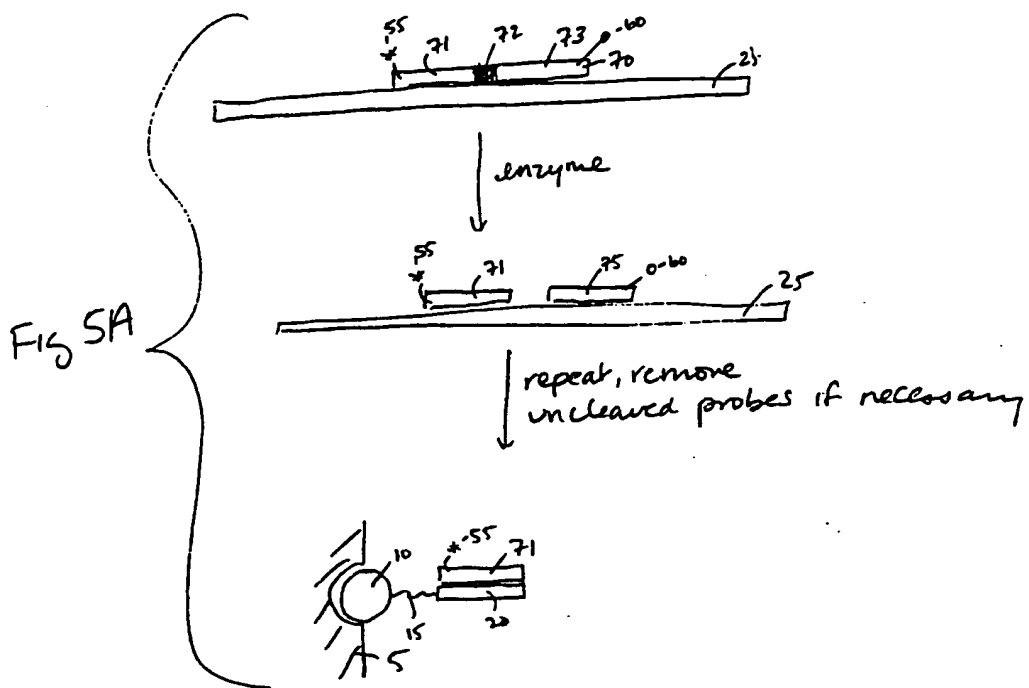 55
*
71
72
73
-60
70
25
enzyme
Fig 5A
55
*
71
75
0-60
25
repeat, remove
uncleaved probes if necessary
10
*-55
71
15
20
5